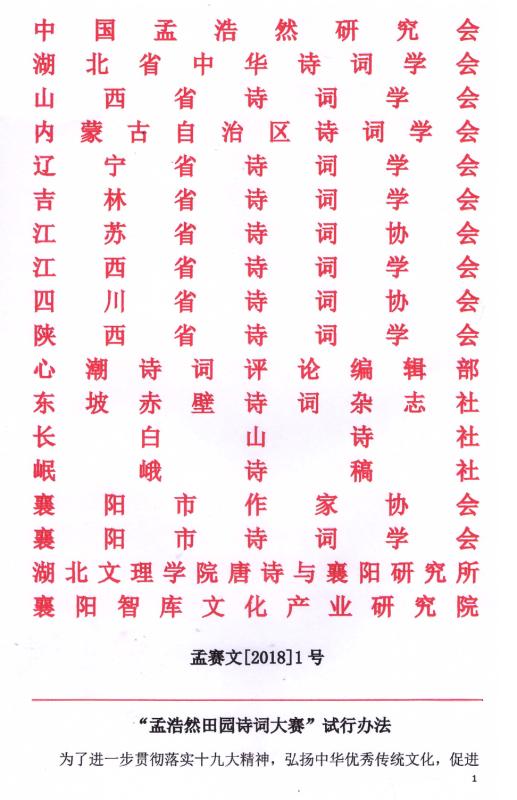 中国孟浩然研究会
湖北省中华诗词学会
山西省诗词学会
内蒙古自治区诗词学会
辽宁省诗词学会
吉林省诗词学会
江苏省诗词协会
江西省诗词学会
四川省诗词协会
陕西省诗词学会
心潮诗词评论编辑部
东坡赤壁诗词杂志社
长白山诗社
岷峨诗稿社
襄阳市作家协会
襄阳市诗词学会
湖北文理学院唐诗与襄阳研究所
襄阳智库文化产业研究院
孟赛文[2018]1号
“孟浩然田园诗词大赛”试行办法
为了进一步贯彻落实十九大精神，弘扬中华优秀传统文化，促进
1